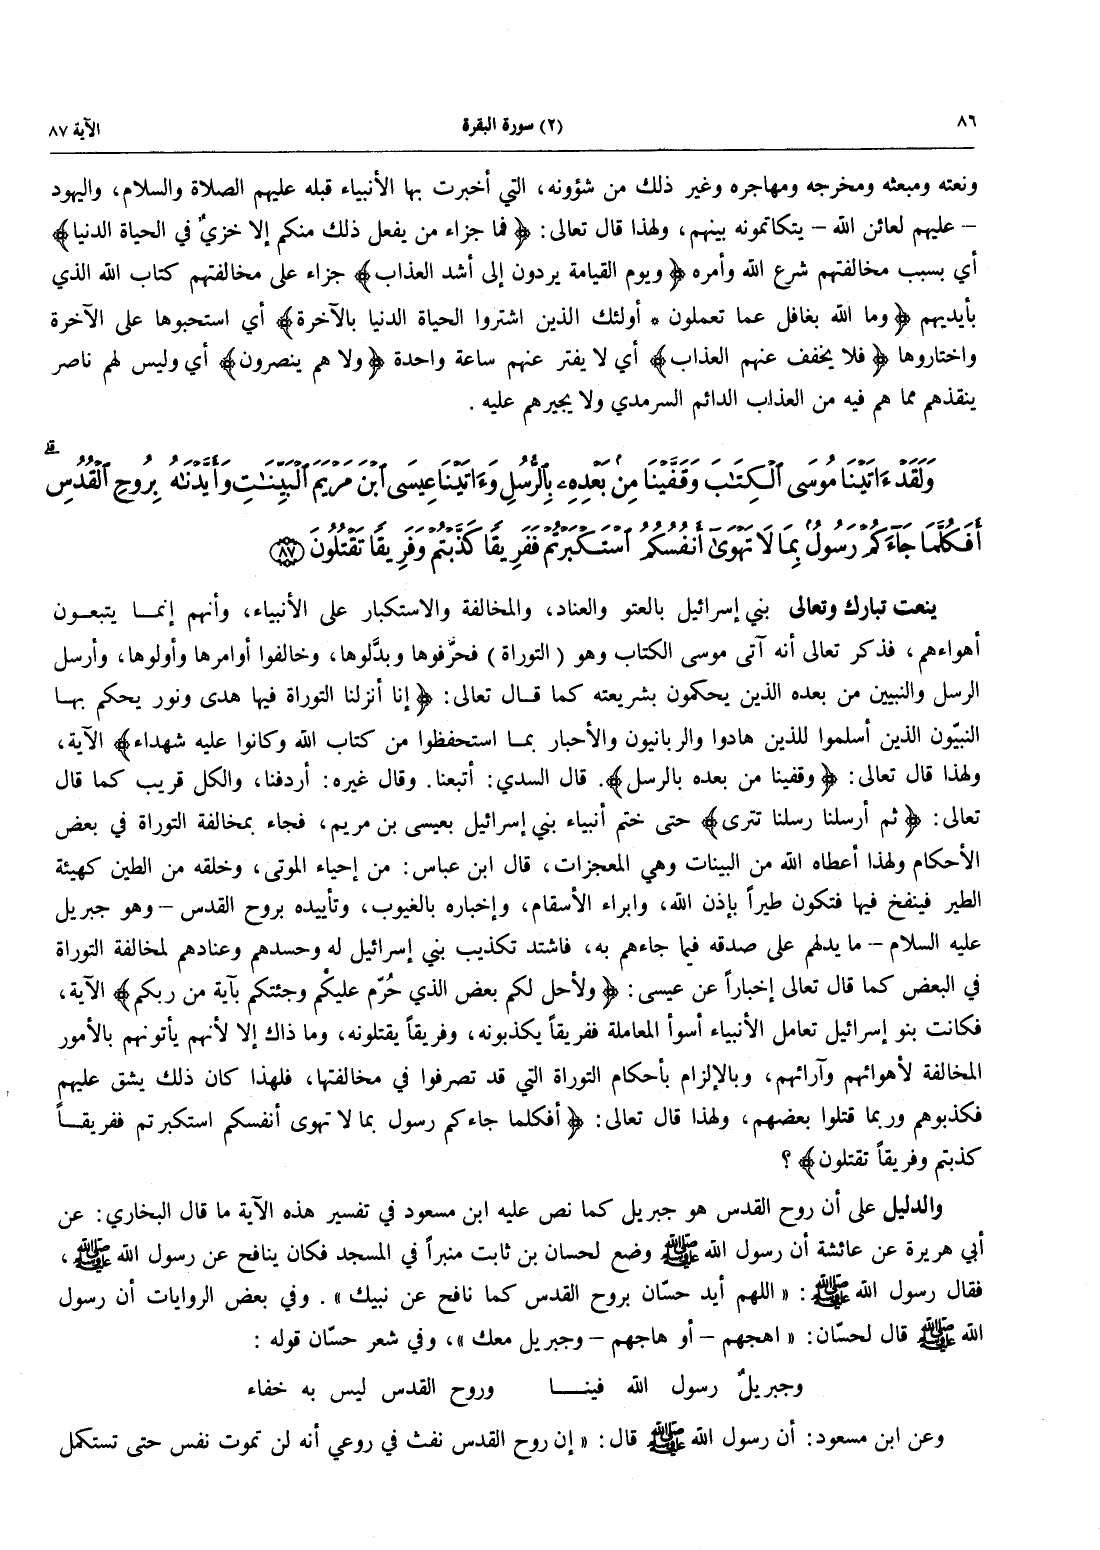 ٨٦ (٢) سورة البقرة الآية ٨٧
ونعته ومبعثه ومخرجه ومهاجره وغير ذلك من شؤونه، التي أخبرت بها الأنبياء قبله عليهم الصلاة والسلام، واليهود
– عليهم لعائن الله – يتكاتمونه بينهم، ولهذا قال تعالى: ﴿ فما جزاء من يفعل ذلك منكم إلا خزيٌ في الحياة الدنيا ﴾
أي بسبب مخالفتهم شرع الله وأمره ﴿ ويوم القيامة يردون إلى أشد العذاب ﴾ جزاء على مخالفتهم كتاب الله الذي
بأيديهم ﴿ وما الله بغافل عما تعملون * أولئك الذين اشتروا الحياة الدنيا بالآخرة ﴾ أي استحبوها على الآخرة
واختاروها ﴿ فلا يخفف عنهم العذاب ﴾ أي لا يفتر عنهم ساعة واحدة ﴿ ولا هم ينصرون ﴾ أي وليس لهم ناصر
ينقذهم مما هم فيه من العذاب الدائم السرمدي ولا يجيرهم عليه .
وَلَقَدْ ءَاتَيْنَا مُوسَى ٱلْكِتَٰبَ وَقَفَّيْنَا مِنۢ بَعْدِهِۦ بِٱلرُّسُلِ وَءَاتَيْنَا عِيسَى ٱبْنَ مَرْيَمَ ٱلْبَيِّنَٰتِ وَأَيَّدْنَٰهُ بِرُوحِ ٱلْقُدُسِ ۗ
أَفَكُلَّمَا جَآءَكُمْ رَسُولٌۢ بِمَا لَا تَهْوَىٰٓ أَنفُسُكُمُ ٱسْتَكْبَرْتُمْ فَفَرِيقًا كَذَّبْتُمْ وَفَرِيقًا تَقْتُلُونَ ﴿٨٧﴾
ينعت تبارك وتعالى بني إسرائيل بالعتو والعناد، والمخالفة والاستكبار على الأنبياء، وأنهم إنمـا يتبعـون
أهواءهم، فذكر تعالى أنه آتى موسى الكتاب وهو ( التوراة ) فحرَّفوها وبدَّلوها، وخالفوا أوامرها وأولوها، وأرسل
الرسل والنبيين من بعده الذين يحكمون بشريعته كما قـال تعالى: ﴿ إنا أنزلنا التوراة فيها هدى ونور يحكم بهـا
النبيّون الذين أسلموا للذين هادوا والربانيون والأحبار بمـا استحفظوا من كتاب الله وكانوا عليه شهداء ﴾ الآية،
ولهذا قال تعالى: ﴿ وقفينا من بعده بالرسل ﴾. قال السدي: أتبعنا. وقال غيره: أردفنا، والكل قريب كما قال
تعالى: ﴿ ثم أرسلنا رسلنا تترى ﴾ حتى ختم أنبياء بني إسرائيل بعيسى بن مريم، فجاء بمخالفة التوراة في بعض
الأحكام ولهذا أعطاه الله من البينات وهي المعجزات، قال ابن عباس: من إحياء الموتى، وخلقه من الطين كهيئة
الطير فينفخ فيها فتكون طيراً بإذن الله، وابراء الأسقام، وإخباره بالغيوب، وتأييده بروح القدس – وهو جبريل
عليه السلام – ما يدلهم على صدقه فيما جاءهم به، فاشتد تكذيب بني إسرائيل له وحسدهم وعنادهم لمخالفة التوراة
في البعض كما قال تعالى إخباراً عن عيسى: ﴿ ولأحل لكم بعض الذي حُرّم عليكْم وجئتكم بآية من ربكم ﴾ الآية،
فكانت بنو إسرائيل تعامل الأنبياء أسوأ المعاملة ففريقاً يكذبونه، وفريقاً يقتلونه، وما ذاك إلا لأنهم يأتونهم بالأمور
المخالفة لأهوائهم وآرائهم، وبالإلزام بأحكام التوراة التي قد تصرفوا في مخالفتها، فلهذا كان ذلك يشق عليهم
فكذبوهم وربما قتلوا بعضهم، ولهذا قال تعالى: ﴿ أفكلما جاءكم رسول بما لا تهوى أنفسكم استكبرتم ففريقـاً
كذبتم وفريقاً تقتلون ﴾ ؟
والدليل على أن روح القدس هو جبريل كما نص عليه ابن مسعود في تفسير هذه الآية ما قال البخاري: عن
أبي هريرة عن عائشة أن رسول الله ﷺ وضع لحسان بن ثابت منبراً في المسجد فكان ينافح عن رسول الله ﷺ ،
فقال رسول الله ﷺ : « اللهم أيد حسّان بروح القدس كما نافح عن نبيك » . وفي بعض الروايات أن رسول
الله ﷺ قال لحسّان: « اهجهم – أو هاجهم – وجبريل معك »، وفي شعر حسّان قوله :
وجبريلٌ رسول الله فينـا وروح القدس ليس به خفاء
وعن ابن مسعود: أن رسول الله ﷺ قال: « إن روح القدس نفث في روعي أنه لن تموت نفس حتى تستكمل